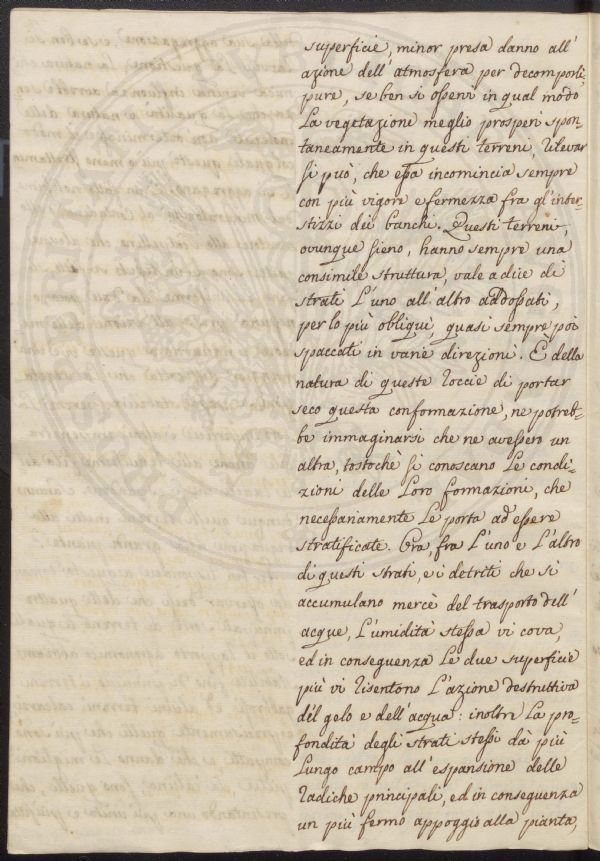 superficie, minor presa danno all'
azione dell'atmosfera per decomporli;
pure, se ben si osservi in qual modo
la vegetazione meglio prosperi spon=
taneamente in questi terreni, rilevar
si può, che essa incomincia sempre
con più vigore e fermezza fra gl'inter=
stizzi dei banchi. Questi terreni,
ovunque sieno, hanno sempre una
consimile struttura, vale a dire di
strati l'uno all'altro addossati,
per lo più obliqui, quasi sempre poi
spaccati in varie direzioni. È della
natura di queste roccie di portar
seco questa conformazione, ne potreb=
be immaginarsi che ne avessero un
altra, tostochè si conoscano le condi=
zioni delle loro formazioni, che
necessariamente le porta ad essere
stratificate. Ora, fra l'uno e l'altro
di questi strati, e i detriti che si
accumulano mercè del trasporto dell'
acque, l'umidità stessa vi cova,
ed in conseguenza le due superficie
più vi risentono l'azione destruttiva
del gelo e dell'acqua: inoltre la pro=
fondità degli strati stessi dà più
lungo campo all'espansione delle
radiche principali, ed in conseguenza
un più fermo appoggio alla pianta,